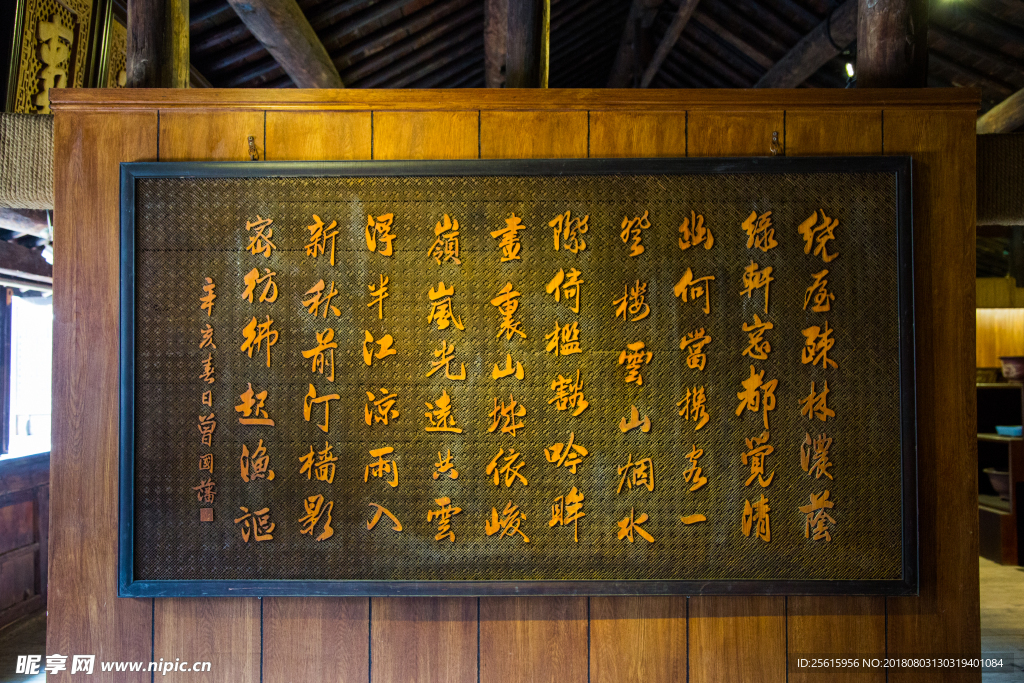 繞屋疎林濃蔭
綠軒窓都覺清
幽何當携客一
登樓雲山烟水
際倚檻豁吟眸
畫裏山城依峻
嶺嵐光遠共雲
浮半江涼雨入
新秋前汀檣影
密彷彿起漁謳
辛亥春日曾國藩
昵享网 www.nipic.cn
ID:25615956 NO:20180803130319401084